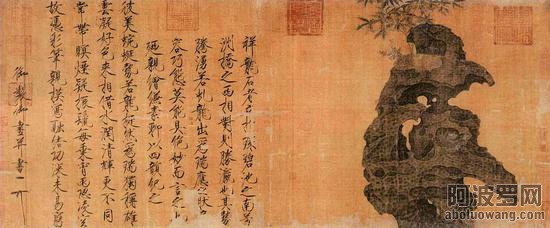 祥龍石者立於環碧池之南芳
洲橋之西相對則勝瀛也其勢
騰湧若虬龍出為瑞應之狀奇
容巧態莫能具絕妙而言之也
廼親繪縑素聊以四韻紀之
彼美蜿蜒勢若龍挺然為瑞獨稱雄
雲凝好色來相借水潤清輝更不同
常帶暝煙疑振鬣每乘宵雨恐凌空
故憑彩筆親模寫融結功深未易窮
御製御畫並書
阿波罗网
aboluowang.com